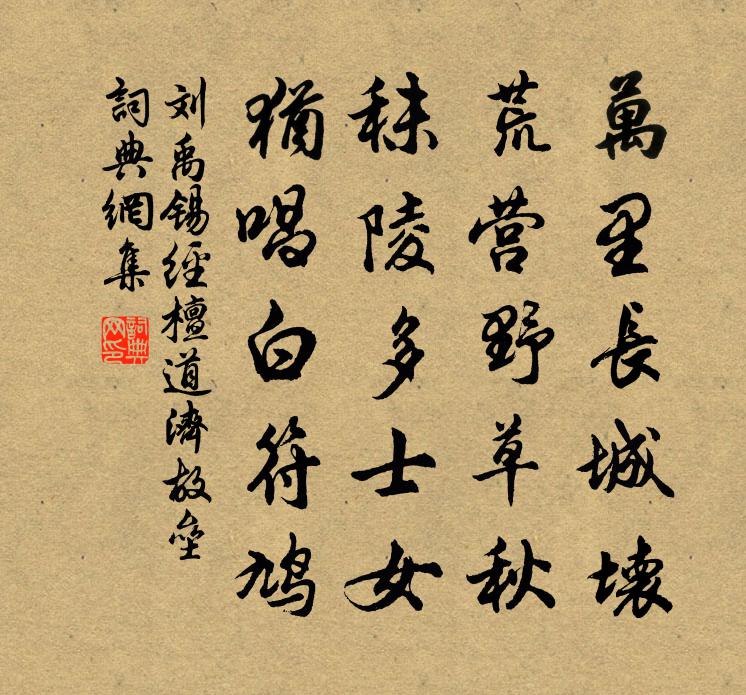 萬里長城壞
荒营野草秋
秣陵多士女
犹唱白符鸠
刘禹锡经檀道濟故壘
詞典網集
詞典網印